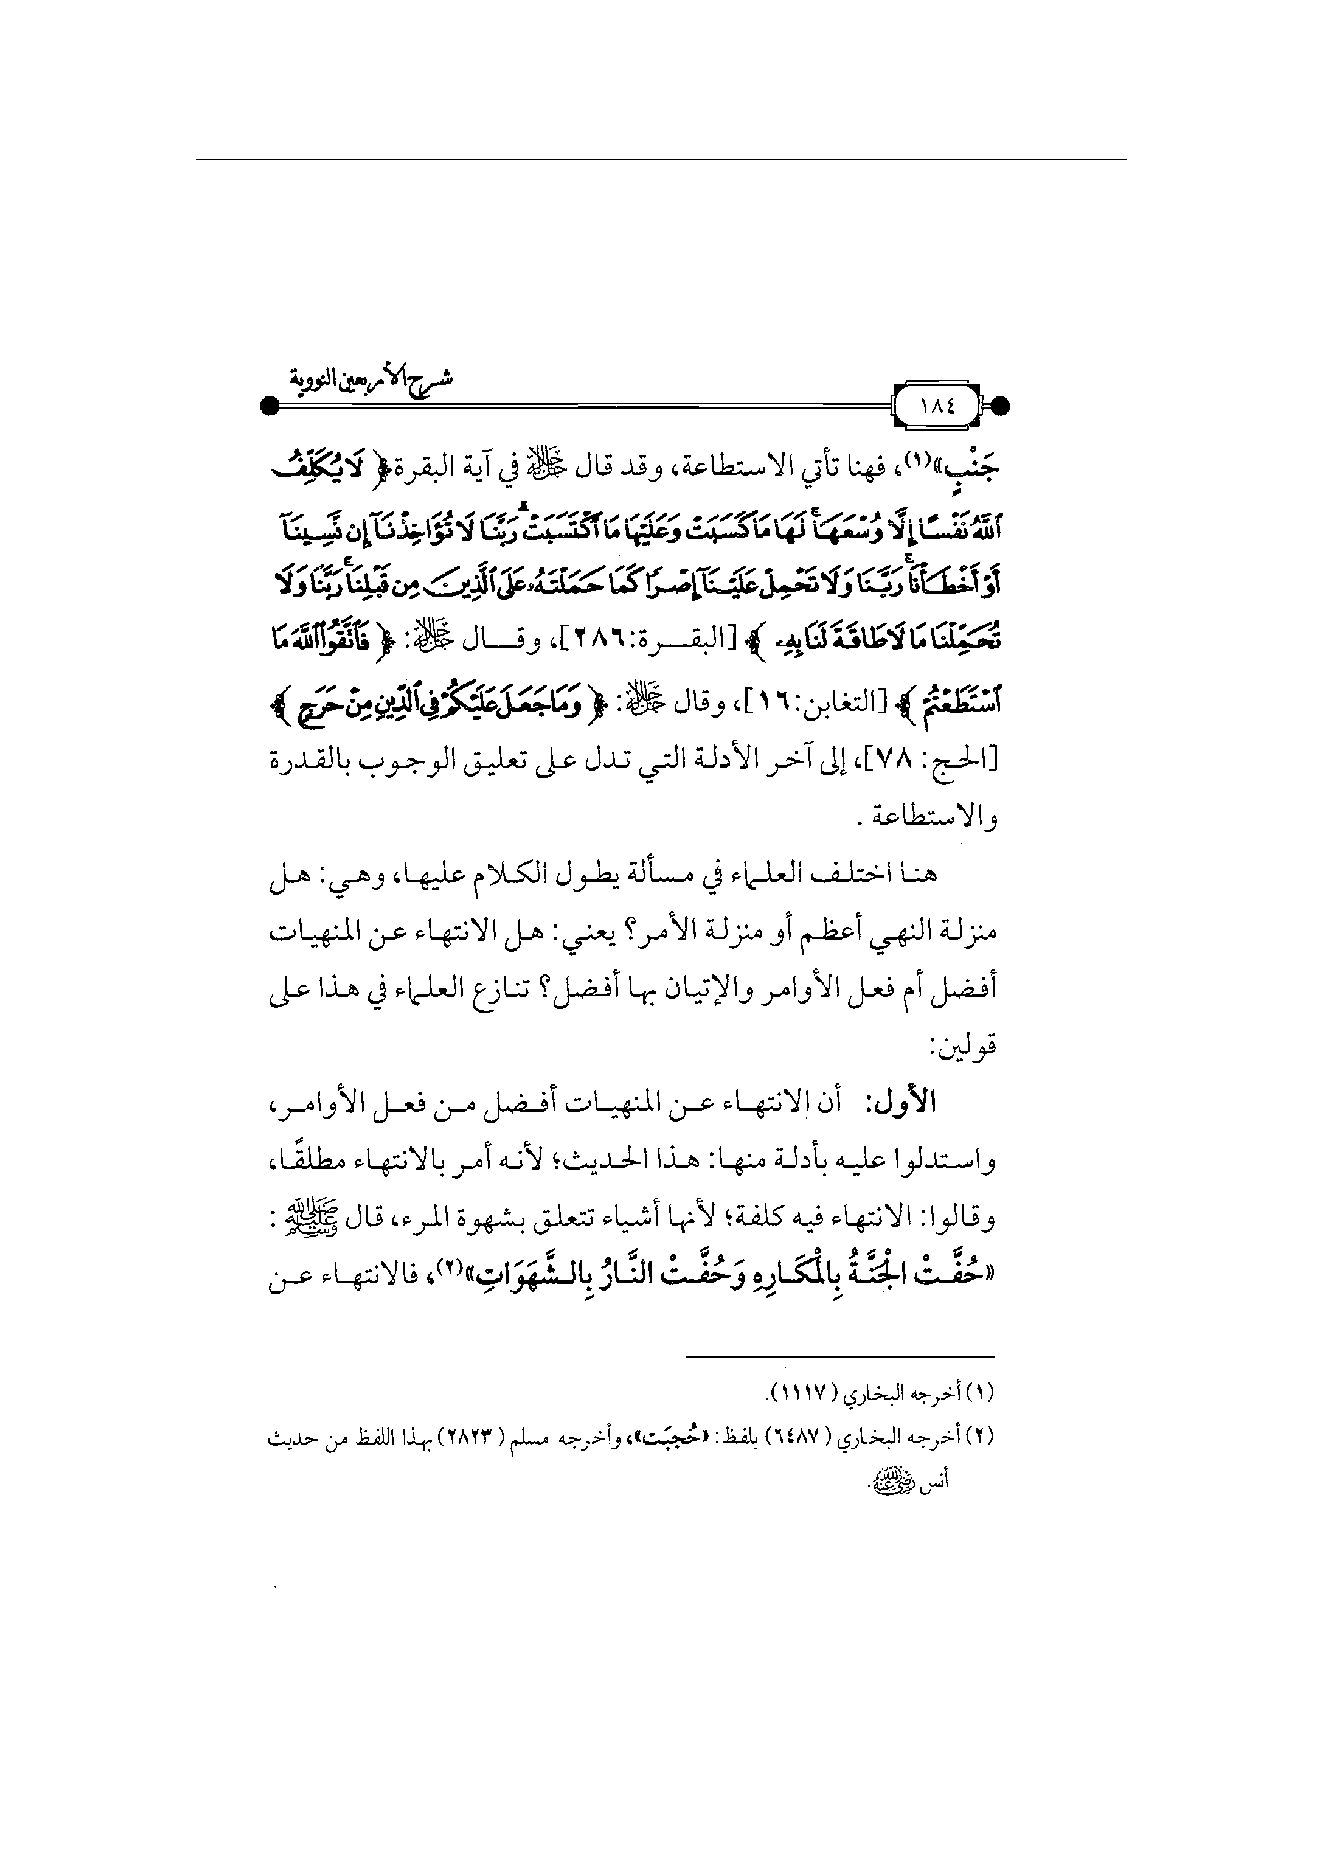 شرح الأربعين النووية
١٨٤
جَنْبٍ»(١)، فهنا تأتي الاستطاعة، وقد قال ﷻ في آية البقرة ﴿ لَا يُكَلِّفُ
ٱللَّهُ نَفْسًا إِلَّا وُسْعَهَا ۚ لَهَا مَا كَسَبَتْ وَعَلَيْهَا مَا ٱكْتَسَبَتْ ۗ رَبَّنَا لَا تُؤَاخِذْنَآ إِن نَّسِينَآ
أَوْ أَخْطَأْنَا ۚ رَبَّنَا وَلَا تَحْمِلْ عَلَيْنَآ إِصْرًا كَمَا حَمَلْتَهُۥ عَلَى ٱلَّذِينَ مِن قَبْلِنَا ۚ رَبَّنَا وَلَا
تُحَمِّلْنَا مَا لَا طَاقَةَ لَنَا بِهِۦ ﴾ [البقرة:٢٨٦]، وقال ﷻ: ﴿ فَٱتَّقُوا۟ ٱللَّهَ مَا
ٱسْتَطَعْتُمْ ﴾ [التغابن:١٦]، وقال ﷻ: ﴿ وَمَا جَعَلَ عَلَيْكُمْ فِى ٱلدِّينِ مِنْ حَرَجٍ ﴾
[الحج: ٧٨]، إلى آخر الأدلة التي تدل على تعليق الوجوب بالقدرة
والاستطاعة .
هنا اختلف العلماء في مسألة يطول الكلام عليها، وهي: هل
منزلة النهي أعظم أو منزلة الأمر؟ يعني: هل الانتهاء عن المنهيات
أفضل أم فعل الأوامر والإتيان بها أفضل؟ تنازع العلماء في هذا على
قولين:
الأول: أن الانتهاء عن المنهيات أفضل من فعل الأوامر،
واستدلوا عليه بأدلة منها: هذا الحديث؛ لأنه أمر بالانتهاء مطلقًا،
وقالوا: الانتهاء فيه كلفة؛ لأنها أشياء تتعلق بشهوة المرء، قال ﷺ :
«حُفَّتْ الْجَنَّةُ بِالْمَكَارِهِ وَحُفَّتْ النَّارُ بِالشَّهَوَاتِ»(٢)، فالانتهاء عن
(١) أخرجه البخاري (١١١٧).
(٢) أخرجه البخاري (٦٤٨٧) بلفظ: «حُجِبَت»، وأخرجه مسلم (٢٨٢٣) بهذا اللفظ من حديث
أنس رضي الله عنه.